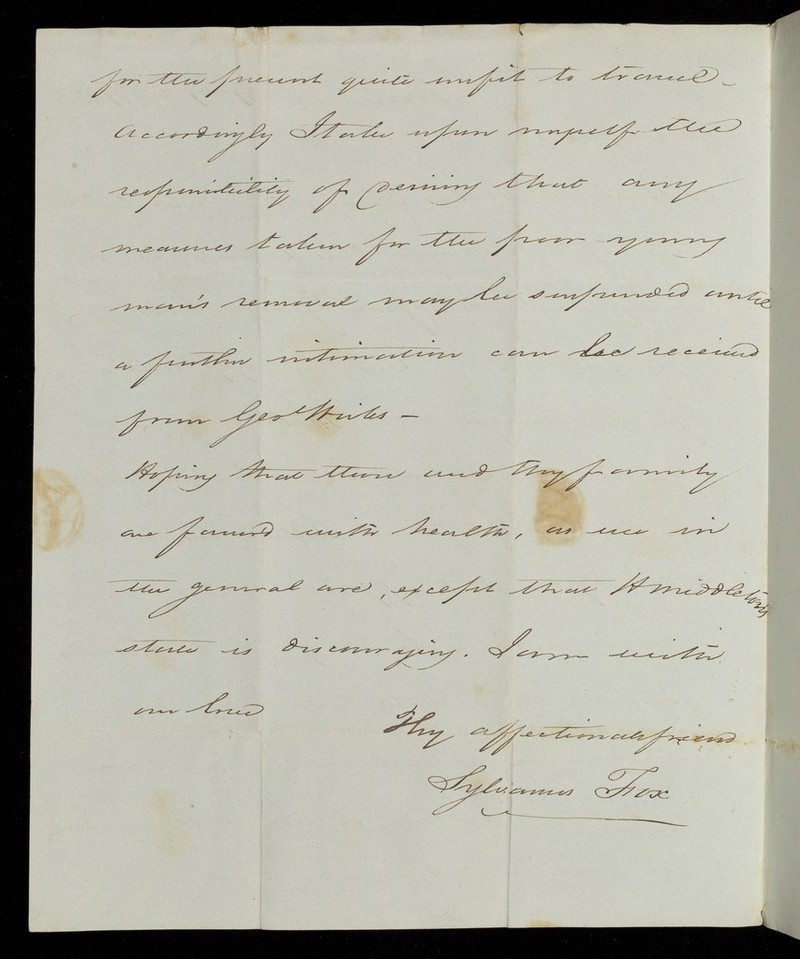 for the present quite unfit to travel –
Accordingly I take upon myself the
responsibility of desiring that any
measures taken for the poor young
man's removal may be suspended until
a further intimation can be received
from Geo
Hoping that thou and thy family
are favored with health, as we in
the general are, except that H Middleton's
state is discouraging. I am with
our love
Thy affectionate friend
Sylvanus Fox